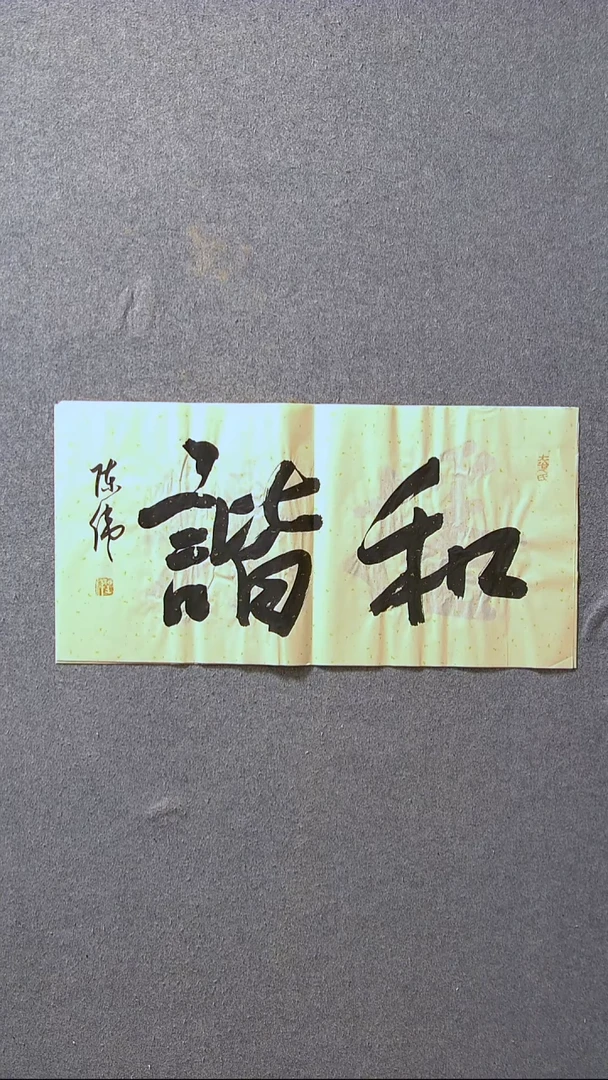 和諧
陈伟